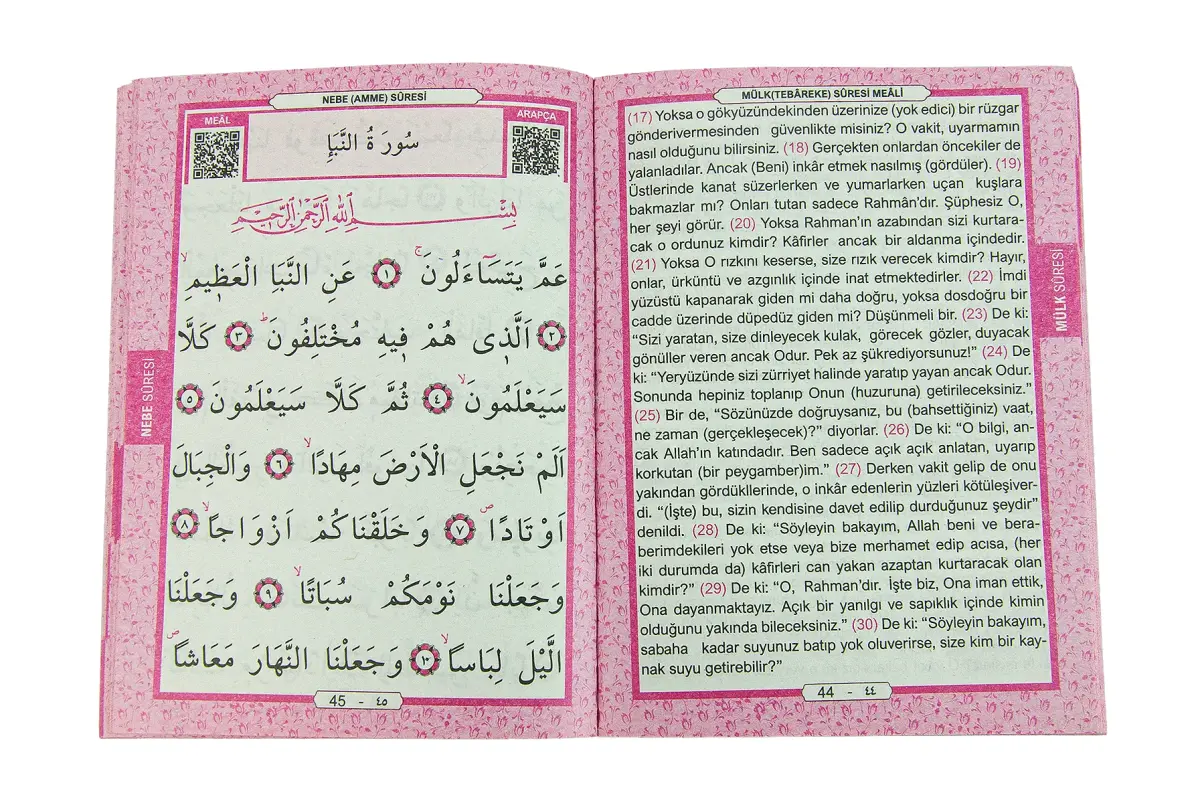 MÜLK(TEBÂREKE) SÛRESİ MEÂLİ
(17) Yoksa o gökyüzündekinden üzerinize (yok edici) bir rüzgar
gönderivermesinden güvenlikte misiniz? O vakit, uyarmamın
nasıl olduğunu bilirsiniz. (18) Gerçekten onlardan öncekiler de
yalanladılar. Ancak (Beni) inkâr etmek nasılmış (gördüler). (19)
Üstlerinde kanat süzerlerken ve yumarlarken uçan kuşlara
bakmazlar mı? Onları tutan sadece Rahmân'dır. Şüphesiz O,
her şeyi görür. (20) Yoksa Rahman'ın azabından sizi kurtara-
cak o ordunuz kimdir? Kâfirler ancak bir aldanma içindedir.
(21) Yoksa O rızkını keserse, size rızık verecek kimdir? Hayır,
onlar, ürküntü ve azgınlık içinde inat etmektedirler. (22) İmdi
yüzüstü kapanarak giden mi daha doğru, yoksa dosdoğru bir
cadde üzerinde düpedüz giden mi? Düşünmeli bir. (23) De ki:
“Sizi yaratan, size dinleyecek kulak, görecek gözler, duyacak
gönüller veren ancak Odur. Pek az şükrediyorsunuz!” (24) De
ki: “Yeryüzünde sizi zürriyet halinde yaratıp yayan ancak Odur.
Sonunda hepiniz toplanıp Onun (huzuruna) getirileceksiniz.”
(25) Bir de, “Sözünüzde doğruysanız, bu (bahsettiğiniz) vaat,
ne zaman (gerçekleşecek)?” diyorlar. (26) De ki: “O bilgi, an-
cak Allah'ın katındadır. Ben sadece açık açık anlatan, uyarıp
korkutan (bir peygamber)im.” (27) Derken vakit gelip de onu
yakından gördükllerinde, o inkâr edenlerin yüzleri kötüleşiver-
di. “(İşte) bu, sizin kendisine davet edilip durduğunuz şeydir”
denildi. (28) De ki: “Söyleyin bakayım, Allah beni ve bera-
berimdekileri yok etse veya bize merhamet edip acısa, (her
iki durumda da) kâfirleri can yakan azaptan kurtaracak olan
kimdir?” (29) De ki: “O, Rahman'dır. İşte biz, Ona iman ettik,
Ona dayanmaktayız. Açık bir yanılgı ve sapıklık içinde kimin
olduğunu yakında bileceksiniz.” (30) De ki: “Söyleyin bakayım,
sabaha kadar suyunuz batıp yok oluverirse, size kim bir kay-
nak suyu getirebilir?”
MÜLK SÛRESİ
44 - ٤٤
NEBE (AMME) SÛRESİ
MEÂL
ARAPÇA
سُورَةُ النَّبَأِ
بِسْمِ اللهِ الرَّحْمٰنِ الرَّحِيمِ
عَمَّ يَتَسَٓاءَلُونَۚ ﴿١﴾ عَنِ النَّبَأِ الْعَظ۪يمِۙ
﴿٢﴾ اَلَّذ۪ى هُمْ ف۪يهِ مُخْتَلِفُونَۜ ﴿٣﴾ كَلَّا
سَيَعْلَمُونَۙ ﴿٤﴾ ثُمَّ كَلَّا سَيَعْلَمُونَ ﴿٥﴾
اَلَمْ نَجْعَلِ الْاَرْضَ مِهَادًاۙ ﴿٦﴾ وَالْجِبَالَ
اَوْتَادًاۖ ﴿٧﴾ وَخَلَقْنَاكُمْ اَزْوَاجًاۙ ﴿٨﴾
وَجَعَلْنَا نَوْمَكُمْ سُبَاتًاۙ ﴿٩﴾ وَجَعَلْنَا
الَّيْلَ لِبَاسًاۙ ﴿١٠﴾ وَجَعَلْنَا النَّهَارَ مَعَاشًاۖ
NEBE SÛRESİ
45 - ٤٥